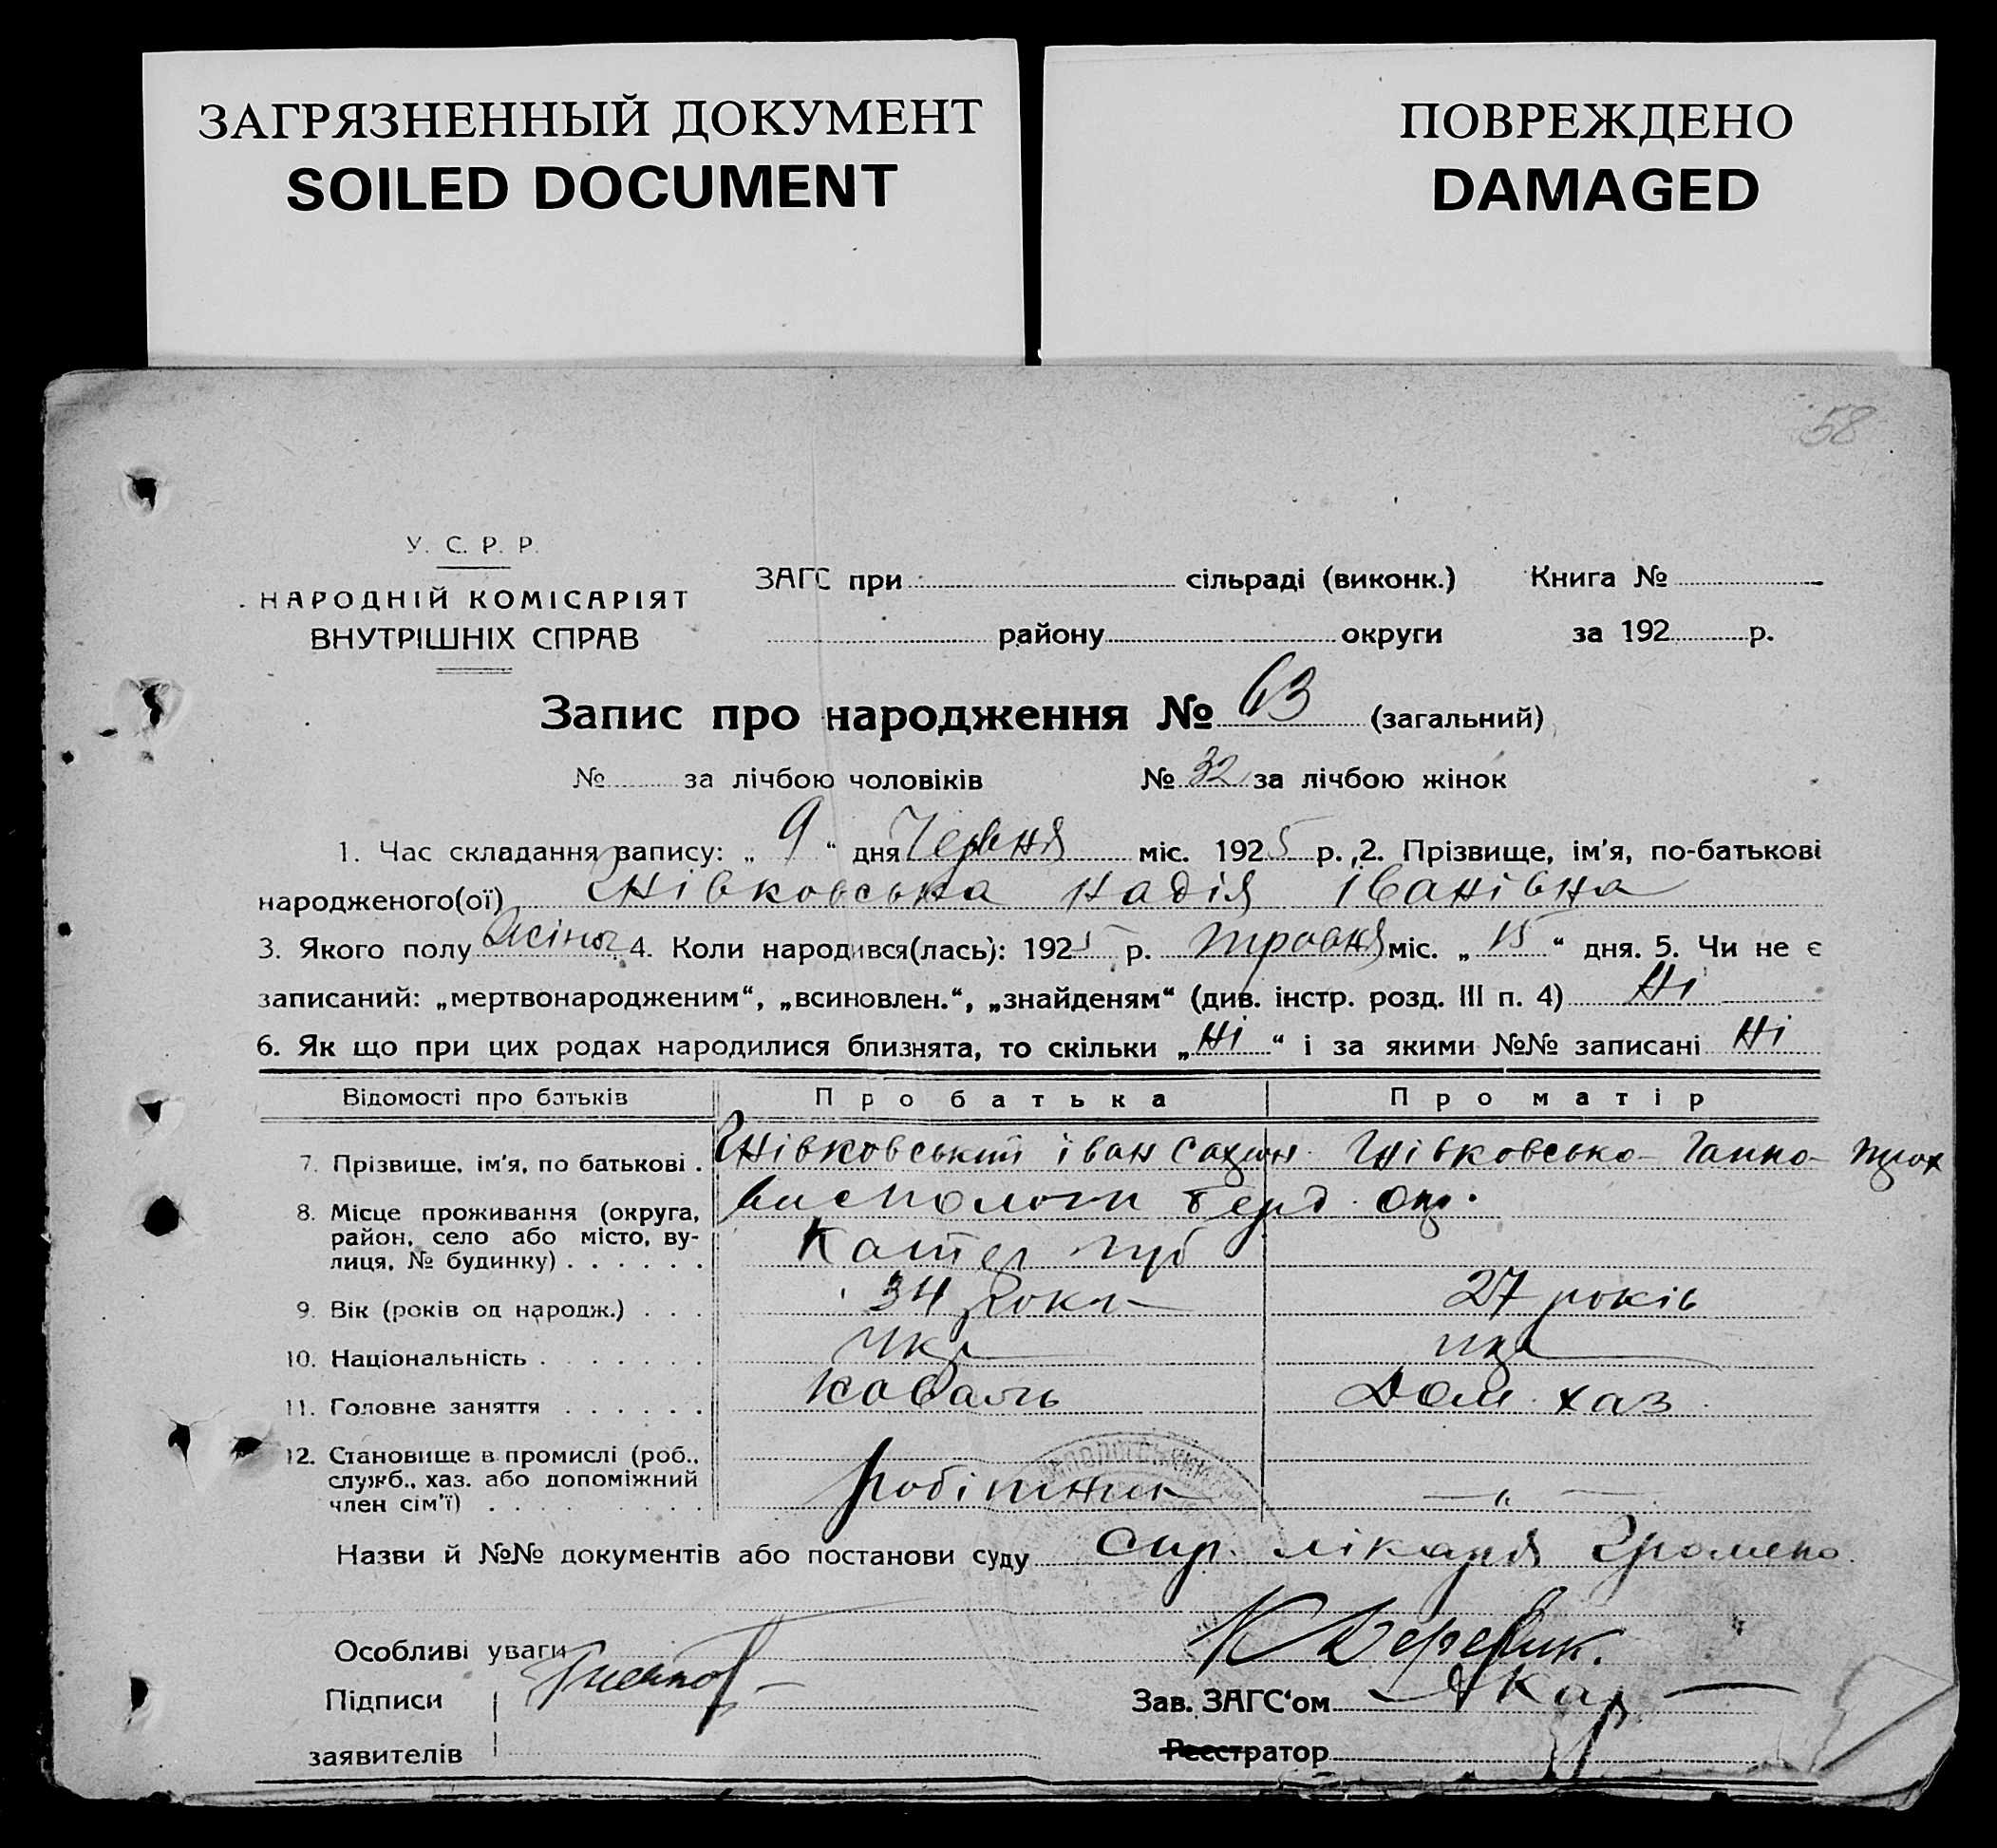 ЗАГРЯЗНЕННЫЙ ДОКУМЕНТ
SOILED DOCUMENT
ПОВРЕЖДЕНО
DAMAGED
58
У. С. Р. Р.
НАРОДНІЙ КОМІСАРІЯТ
ВНУТРІШНІХ СПРАВ
ЗАГС при сільраді (виконк.) Книга №
району округи за 192 р.
Запис про народження № 63 (загальний)
№ за лічбою чоловіків № 32 за лічбою жінок
1. Час складання запису: „ 9 “ дня Червня міс. 1925 р. 2. Прізвище, ім'я, по-батькові
народженого(ої) Гнівковська Надія Іванівна
3. Якого полу жіночого 4. Коли народився(лась): 1925 р. травня міс. „ 15 “ дня. 5. Чи не є
записаний: „мертвонародженим“, „всиновлен.“, „знайденям“ (див. інстр. розд. III п. 4) Ні
6. Як що при цих родах народилися близнята, то скільки „ Ні “ і за якими №№ записані Ні
Відомості про батьків Про батька Про матір
7. Прізвище, ім'я, по батькові . Гнівковський Іван Гнівковська Ганна
8. Місце проживання (округа, район, село або місто, вулиця, № будинку) . . . . . . Берд. окр.
Катер губ
9. Вік (років од народж.) . . . 34 роки 27 років
10. Національність . . . . . . . укр укр
11. Головне заняття . . . . . . коваль Дом. хаз
12. Становище в промислі (роб.,
служб., хаз. або допоміжний
член сім'ї) . . . . . . . . . робітник — „ —
Назви й №№ документів або постанови суду спр. лікаря
Особливі уваги
Підписи
Зав. ЗАГС‘ом
заявителів
Реєстратор